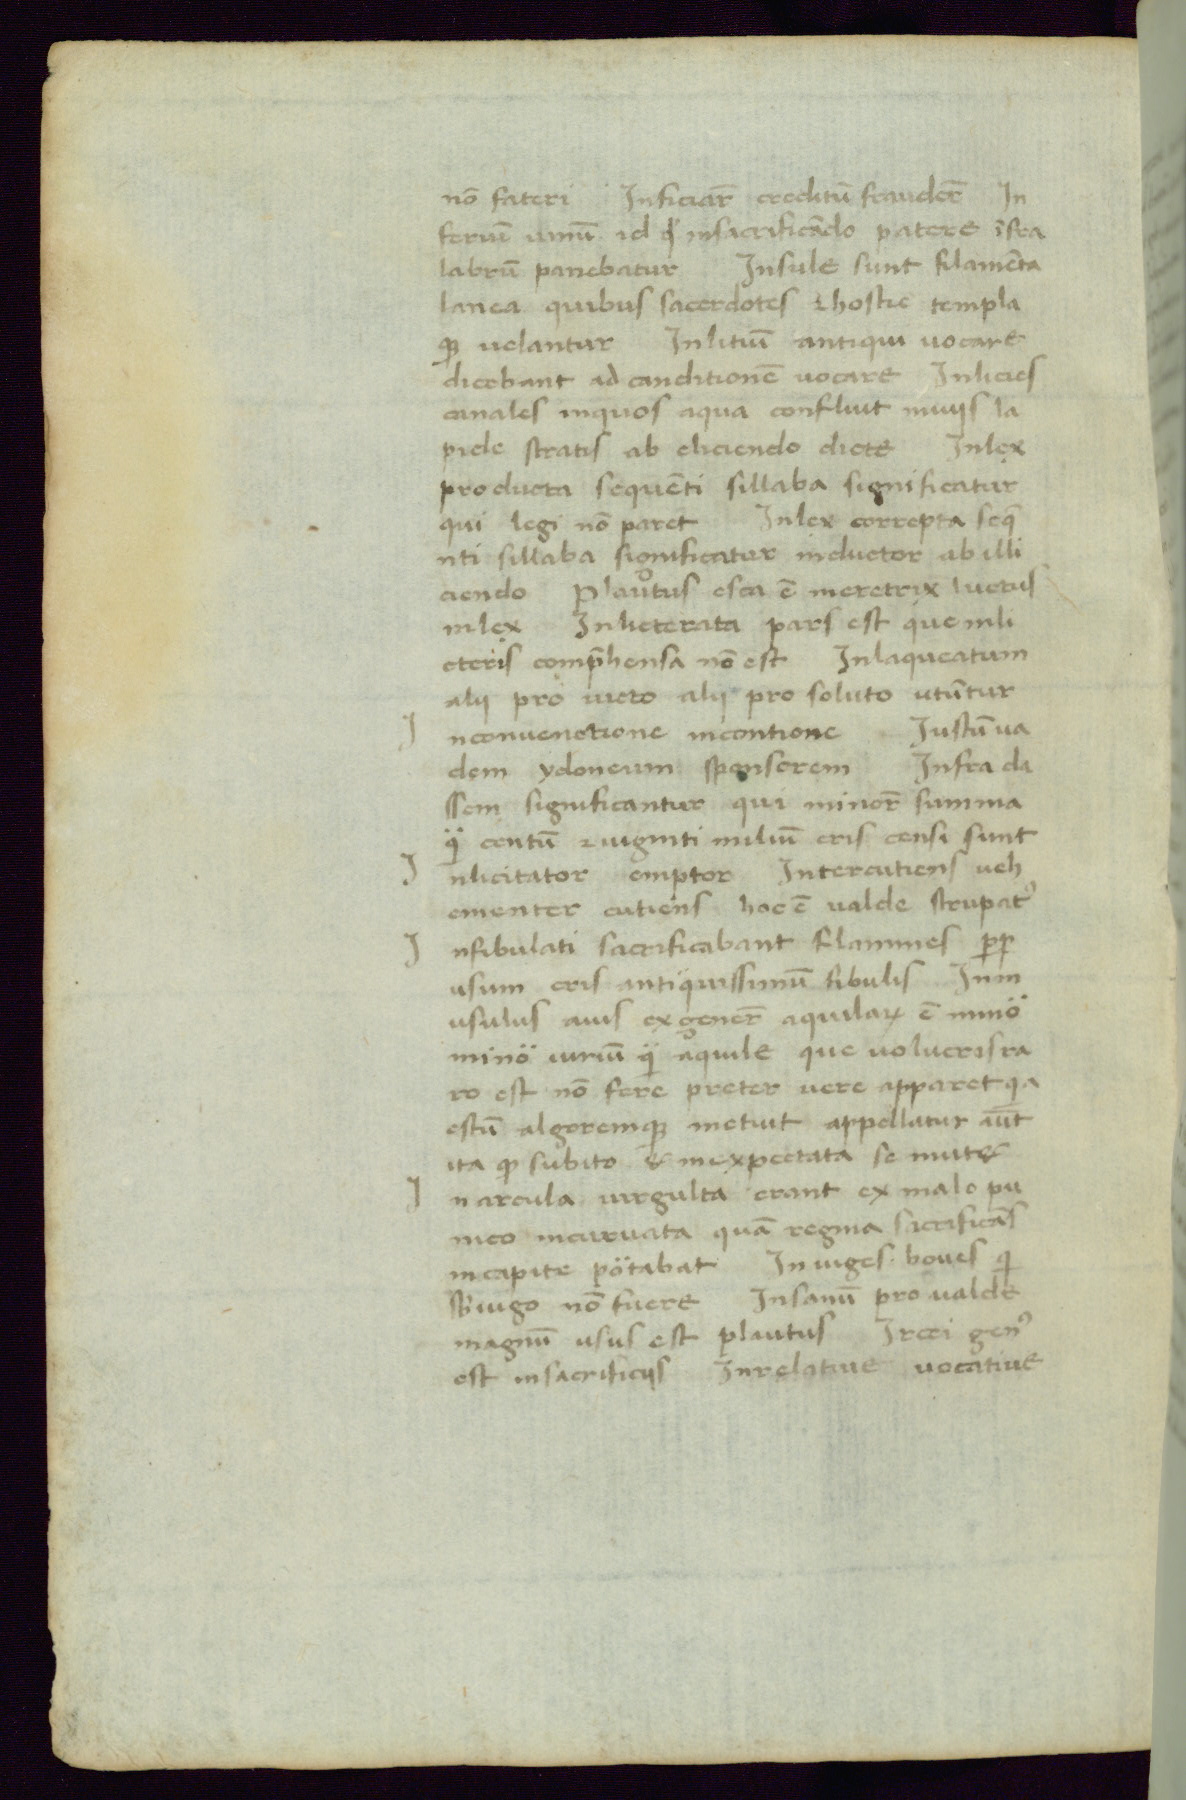 nō fateri Inficiar̄ creditū frauder̄ In
feriuī uinū id q̄ insacrificādo patere īfra
labrū panebatur Insule sunt filamēta
lanea quibus sacerdotes ⁊ hostie templa
qꝫ uelantur Inlitiuī antiqui uocare
dicebant ad canditionē uocare Inlicies
canales inquos aqua confluit inuijs la
pide stratis ab eliciendo dicte Inlex
producta sequēti sillaba significatur
qui legi nō paret Inlex correpta seq̄
nti sillaba significatur inductor ab illi
ciendo Plautus esca ē meretrix luctus
inlex Inlicterata pars est que inli
cteris comp̄hensa nō est Inlaqueatum
alij pro uicto alij pro soluto utūtur
Inconuenctione incontione Iustū ua
dem ydoneum sponserem Infra cla
ssem significantur qui minor̄ summa
q̈ centū ⁊ uiginti miliū eris censi sunt
Inlicitator emptor Intercutiens ueh
ementer cutiens hoc ē ualde strupatꝰ
Infibulati sacrificabant flamines ꝓp
usum eris antiquissimū fibulis Inm
usulus auis ex gener̄ aquilaꝝ ē minö
minö uiriū q̈ aquile que uolucris ra
ro est nō fere preter uere apparet qa
estū algoremqꝫ metuit appellatur aūt
ita qꝫ subito & inexpectata se inmite
Inarcula uirgulta erant ex malo pu
nico incuruata quā regina sacrificās
incapite pötabat Iniuges boues q̄
sb̄ iugo nō fuere Insanū pro ualde
magnū usus est plautus Irceri genꝰ
est insacrificijs Inrelatiue uocatiue